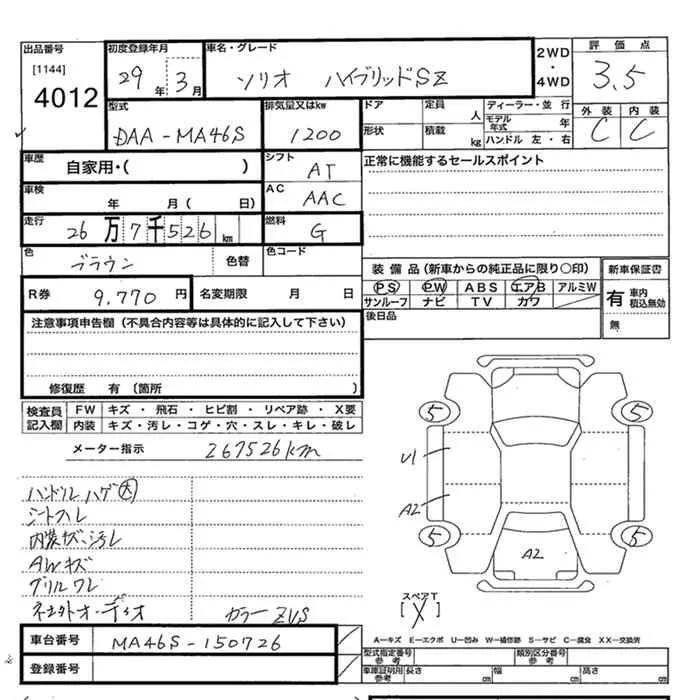 出品番号
[1144]
4012
初度登録年月
29年3月
車名・グレード
ソリオ ハイブリッドSZ
2WD
・
4WD
評価点
3.5
外装 内装
C C
型式
DAA-MA46S
排気量又はkw
1200
ドア 定員 人
形状 積載 kg
ディーラー・並行
モデル年式 年
ハンドル 左・右
車歴
自家用・( )
シフト
AT
車検
年 月( 日)
AC
AAC
走行
26万7千526km
燃料
G
色
ブラウン
色替
色コード
R券
9,770円
名変期限 月 日
正常に機能するセールスポイント
装備品(新車からの純正品に限り〇印)
PS PW ABS エアB アルミW
サンルーフ ナビ TV カワ
後日品
新車保証書
有 車内 積込無効
無
注意事項申告欄(不具合内容等は具体的に記入して下さい)
修復歴 有(箇所 )
検査員記入欄
FW キズ・飛石・ヒビ割・リペア跡・X要
内装 キズ・汚レ・コゲ・穴・スレ・キレ・破レ
メーター指示 267526km
ハンドルハゲ大
シートスレ
内装キズ、汚レ
AWキズ
グリルワレ
カラーZVS
5 5
U1
A2
5 5
A2
スペアT
[X]
A−キズ E−エクボ U−凹み W−補修跡 S−サビ C−腐食 XX−交換済
車台番号
MA46S-150726
登録番号
型式指定番号 参考
類別区分番号 参考
車庫証明用 参考
長さ cm 幅 cm 高さ cm